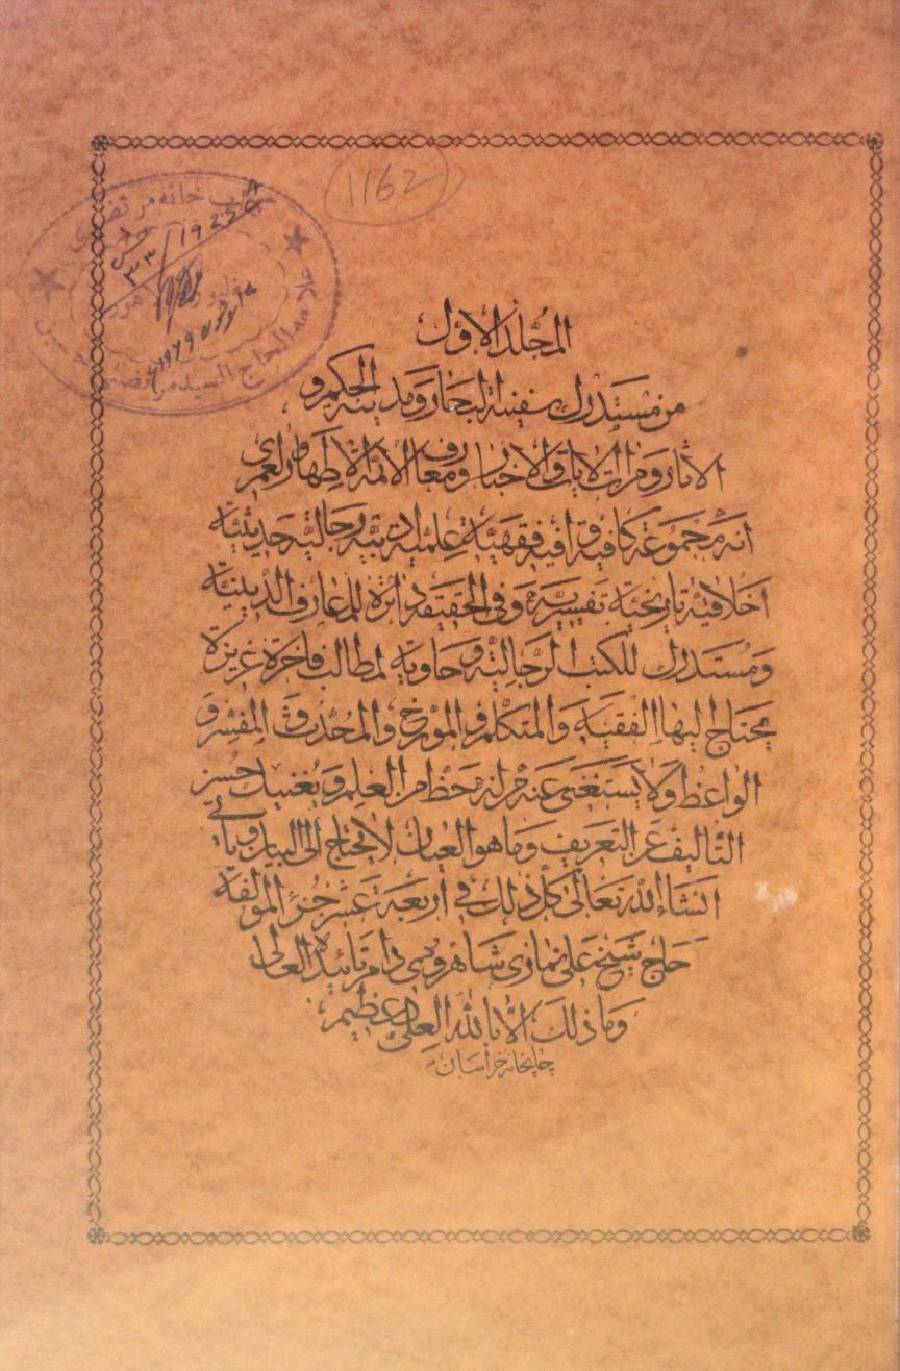 1162
المجلد الاول
من مستدرك سفينة البحار ومدينة الحكم و
الاثار ومرات الايات والاخبار ومعارف الائمة الاطهار ولعمري
انه مجموعة كافية وافية فقهية علمية ادبية رجالية حديثية
اخلاقية تاريخية تفسيرية وفى الحقيقة دائرة للمعارف الدينية
ومستدرك للكتب الرجالية وحاوية لمطالب فاخرة غزيرة
يحتاج اليها الفقيه والمتكلم والمورخ والمحدث والمفسر و
الواعظ ولا يستغنى عنه من له حظ من العلم ويغنيك حسن
التاليف عن التعريف وما هو العيان لا يحتاج الى البيان وياتى
انشاء الله تعالى كل ذلك فى اربعة عشر جزء المولفه
حاج شيخ على نمازى شاهرودى دام تائيده العالى
وما ذلك الا بالله العلى العظيم
چاپخانه خراسان
خانه مرتضوى
الحاج السيد مرتضى حسين